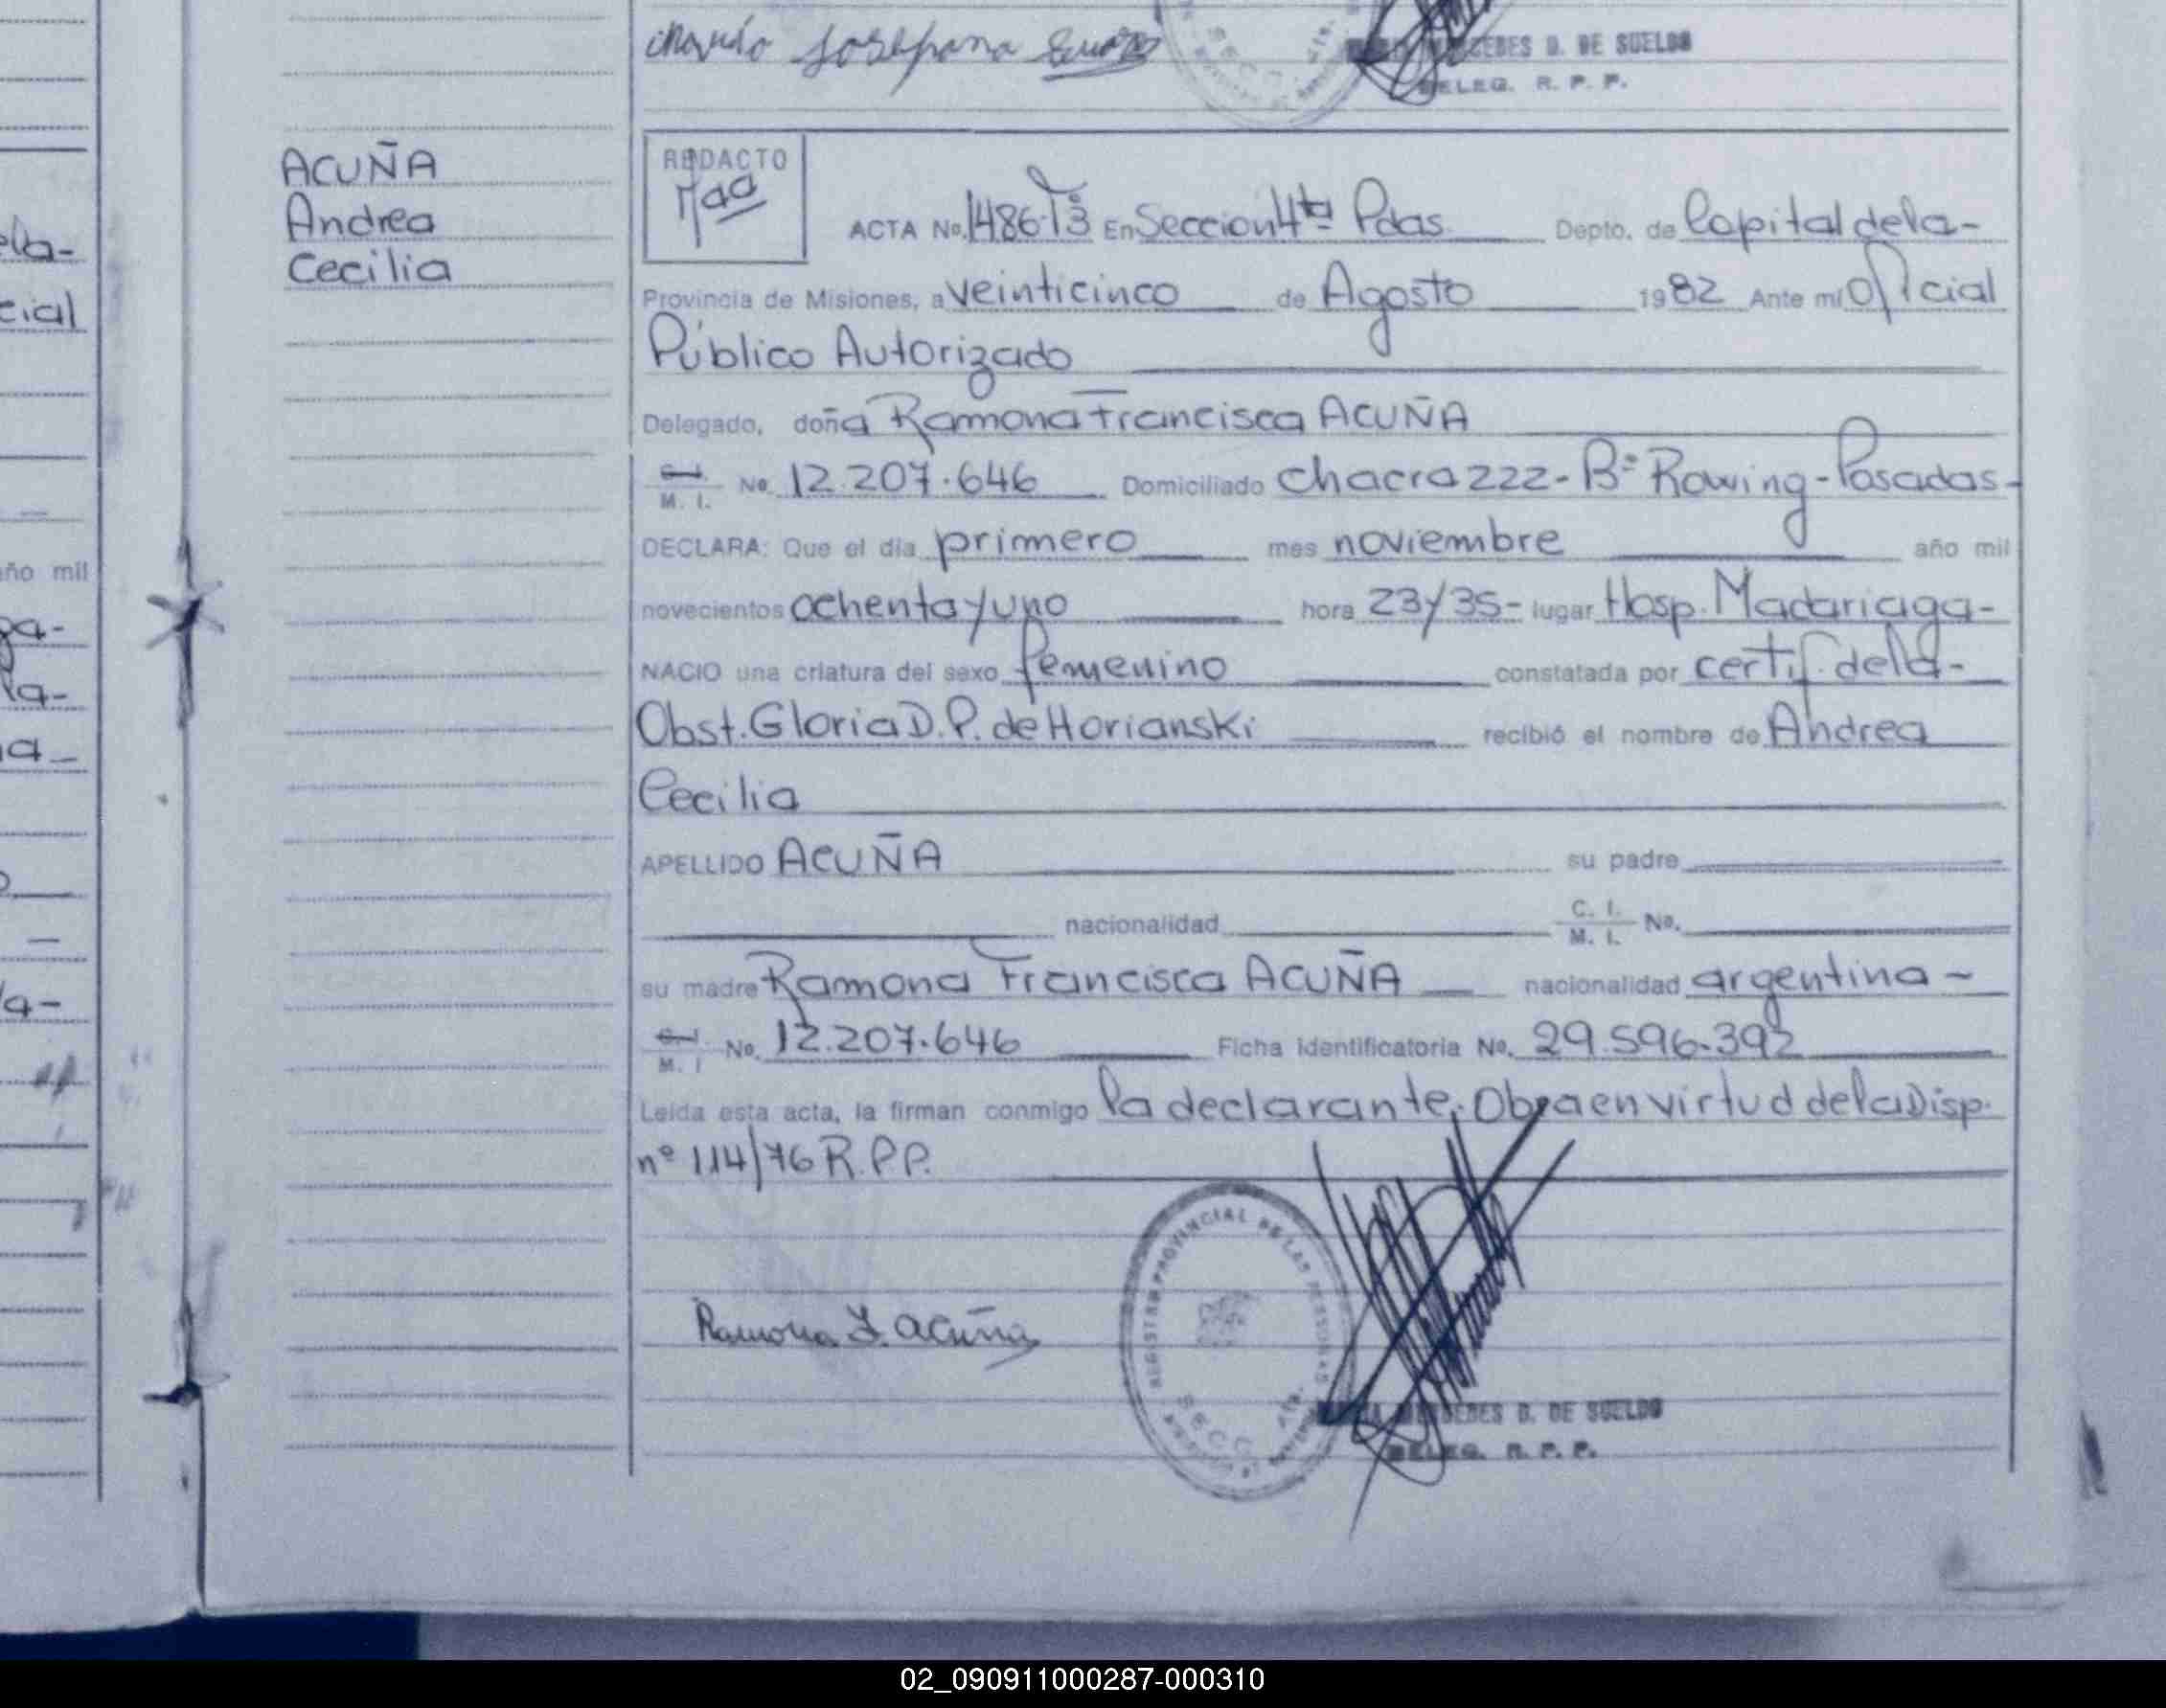 Josefana
MERCEDES D. DE SUELDO
DELEG. R. P. P.
ACUÑA
Andrea
Cecilia
REDACTO
ACTA No. 1486-Tº3 En Seccion 4ta Pdas. Depto. de Capital de la-
Provincia de Misiones, a veinticinco de Agosto 1982 Ante mí Oficial
Público Autorizado
Delegado, doña Ramona Francisca ACUÑA
C. I. M. I. No. 12.207.646 Domiciliado chacra 222-Bº Rowing-Posadas-
DECLARA: Que el día primero mes noviembre año mil
novecientos ochenta y uno hora 23y35- lugar Hosp. Madariaga-
NACIO una criatura del sexo femenino constatada por certif. de la-
Obst. Gloria D. P. de Horianski recibió el nombre de Andrea
Cecilia
APELLIDO ACUÑA su padre
nacionalidad C. I. M. I. No.
su madre Ramona Francisca ACUÑA nacionalidad argentina-
C. I. M. I No. 12.207.646 Ficha Identificatoria No. 29.596.392
Leída esta acta, la firman conmigo la declarante, Obra en virtud de la Disp.
nº 114/76 R.P.P.
REGISTRO PROVINCIAL DE LAS PERSONAS
SECC. 4ta.
Ramona F. Acuña
MERCEDES D. DE SUELDO
DELEG. R. P. P.
ela-
cial
año mil
ga-
la-
na-
la-
02_090911000287-000310